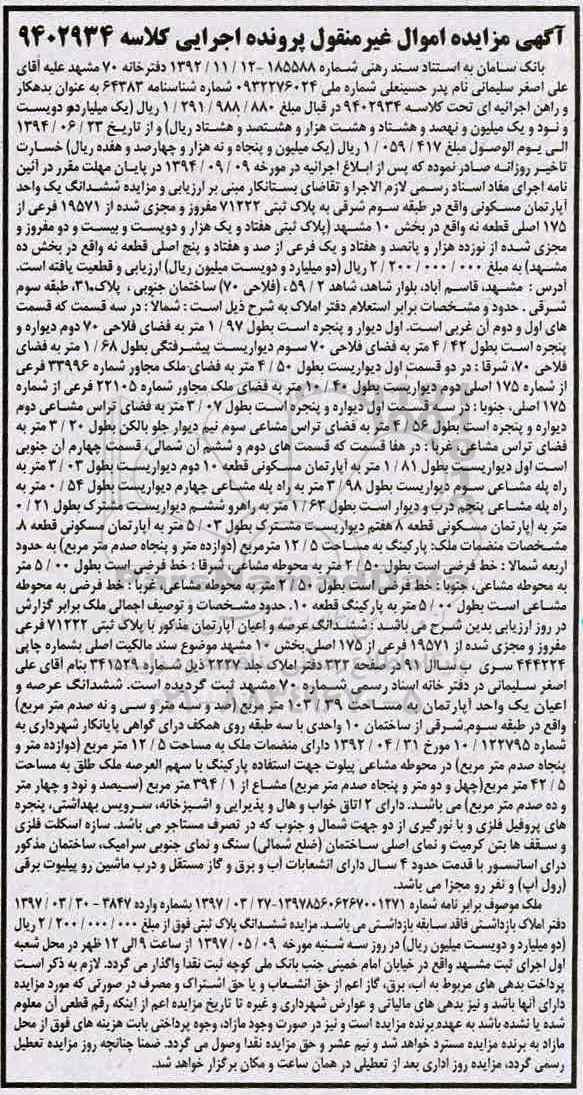 آگهی مزایده اموال غیرمنقول پرونده اجرایی کلاسه ۹۴۰۲۹۳۴
بانک سامان به استناد سند رهنی شماره ۱۸۵۵۸۸ -۱۲ / ۱۱ / ۱۳۹۲ دفترخانه ۷۰ مشهد علیه آقای
علی اصغر سلیمانی نام پدر حسینعلی شماره ملی ۰۹۳۲۲۷۶۰۲۴ شماره شناسنامه ۶۴۳۸۳ به عنوان بدهکار
و راهن اجرائیه ای تحت کلاسه ۹۴۰۲۹۳۴ در قبال مبلغ ۸۸۰ / ۹۸۸ / ۲۹۱ / ۱ ریال (یک میلیاردو دویست
و نود و یک میلیون و نهصد و هشتاد و هشت هزار و هشتصد و هشتاد ریال) و از تاریخ ۲۳ / ۰۶ / ۱۳۹۴
الی یوم الوصول مبلغ ۴۱۷ / ۰۵۹ / ۱ ریال (یک میلیون و پنجاه و نه هزار و چهارصد و هفده ریال) خسارت
تاخیر روزانه صادر نموده که پس از ابلاغ اجرائیه در مورخه ۰۹ / ۰۹ / ۱۳۹۴ در پایان مهلت مقرر در آئین
نامه اجرای مفاد اسناد رسمی لازم الاجرا و تقاضای بستانکار مبنی بر ارزیابی و مزایده ششدانگ یک واحد
آپارتمان مسکونی واقع در طبقه سوم شرقی به پلاک ثبتی ۷۱۲۲۲ مفروز و مجزی شده از ۱۹۵۷۱ فرعی از
۱۷۵ اصلی قطعه نه واقع در بخش ۱۰ مشهد (پلاک ثبتی هفتاد و یک هزار و دویست و بیست و دو مفروز و
مجزی شده از نوزده هزار و پانصد و هفتاد و یک فرعی از صد و هفتاد و پنج اصلی قطعه نه واقع در بخش ده
مشهد) به مبلغ ۰۰۰ / ۰۰۰ / ۲۰۰ / ۲ ریال (دو میلیارد و دویست میلیون ریال) ارزیابی و قطعیت یافته است.
آدرس : مشهد، قاسم آباد، بلوار شاهد، شاهد ۲ / ۵۹ ، (فلاحی ۷۰) ساختمان جنوبی ، پلاک۳۱، طبقه سوم
شرقی . حدود و مشخصات برابر استعلام دفتر املاک به شرح ذیل است : شمالا: در سه قسمت که قسمت
های اول و دوم آن غربی است. اول دیوار و پنجره است بطول ۹۷ / ۱ متر به فضای فلاحی ۷۰ دوم دیواره و
پنجره است بطول ۴۲ / ۴ متر به فضای فلاحی ۷۰ سوم دیواریست پیشرفتگی بطول ۶۸ / ۱ متر به فضای
فلاحی ۷۰، شرقا : در دو قسمت اول دیواریست بطول ۵۰ / ۴ متر به فضای ملک مجاور شماره ۳۳۹۹۶ فرعی
از شماره ۱۷۵ اصلی دوم دیواریست بطول ۴۰ / ۱۰ متر به فضای ملک مجاور شماره ۲۲۱۰۵ فرعی از شماره
۱۷۵ اصلی، جنوبا : در سه قسمت اول دیواره و پنجره است بطول ۰۷ / ۳ متر به فضای تراس مشاعی دوم
دیواره و پنجره است بطول ۵۶ / ۴ متر به فضای تراس مشاعی سوم نیم دیوار جلو بالکن بطول ۲۰ / ۳ متر به
فضای تراس مشاعی، غربا : در هفا قسمت که قسمت های دوم و ششم آن شمالی، قسمت چهارم آن جنوبی
است اول دیواریست بطول ۸۱ / ۱ متر به آپارتمان مسکونی قطعه ۱۰ دوم دیواریست بطول ۰۳ / ۳ متر به
راه پله مشاعی سوم دیواریست بطول ۹۸ / ۳ متر به راه پله مشاعی چهارم دیواریست بطول ۵۴ / ۰ متر به
راه پله مشاعی پنجم درب و دیوار است بطول ۶۳ / ۱ متر به راهرو ششم دیواریست مشترک بطول ۲۱ / ۰
متر به آپارتمان مسکونی قطعه ۸ هفتم دیواریست مشترک بطول ۰۳ / ۵ متر به آپارتمان مسکونی قطعه ۸.
مشخصات منضمات ملک: پارکینگ به مساحت ۵ / ۱۲ مترمربع (دوازده متر و پنجاه صدم متر مربع) به حدود
اربعه شمالا : خط فرضی است بطول ۵۰ / ۲ متر به محوطه مشاعی، شرقا : خط فرضی است بطول ۰۰ / ۵ متر
به محوطه مشاعی، جنوبا : خط فرضی است بطول ۵۰ / ۲ متر به محوطه مشاعی، غربا : خط فرضی به محوطه
مشاعی است بطول ۰۰ / ۵ متر به پارکینگ قطعه ۱۰. حدود مشخصات و توصیف اجمالی ملک برابر گزارش
در روز ارزیابی بدین شرح می باشد : ششدانگ عرصه و اعیان آپارتمان مذکور با پلاک ثبتی ۷۱۲۲۲ فرعی
مفروز و مجزی شده از ۱۹۵۷۱ فرعی از ۱۷۵ اصلی بخش ۱۰ مشهد موضوع سند مالکیت اصلی بشماره چاپی
۴۴۴۲۲۴ سری ب سال ۹۱ در صفحه ۳۲۲ دفتر املاک جلد ۲۲۲۷ ذیل شماره ۳۴۱۵۲۹ بنام آقای علی
اصغر سلیمانی در دفتر خانه اسناد رسمی شماره ۷۰ مشهد ثبت گردیده است. ششدانگ عرصه و
اعیان یک واحد آپارتمان به مساحت ۳۹ / ۱۰۳ متر مربع (صد و سه متر و سی و نه صدم متر مربع)
واقع در طبقه سوم شرقی از ساختمان ۱۰ واحدی با سه طبقه روی همکف درای گواهی پایانکار شهرداری به
شماره ۱۲۲۷۹۵ / ۱۰ مورخ ۳۱ / ۰۴ / ۱۳۹۲ دارای منضمات ملک به مساحت ۵ / ۱۲ متر مربع (دوازده متر و
پنجاه صدم متر مربع) در محوطه مشاعی پیلوت جهت استفاده پارکینگ با سهم العرصه ملک طلق به مساحت
۵ / ۴۲ متر مربع(چهل و دو متر و پنجاه صدم متر مربع) مشاع از ۱ / ۳۹۴ متر مربع (سیصد و نود و چهار متر
و ده صدم متر مربع) می باشد. دارای ۲ اتاق خواب و هال و پذیرایی و آشپزخانه، سرویس بهداشتی، پنجره
های پروفیل فلزی و با نورگیری از دو جهت شمال و جنوب که در تصرف مستاجر می باشد. سازه اسکلت فلزی
و سقف ها بتن کرمیت و نمای اصلی ساختمان (ضلع شمالی) سنگ و نمای جنوبی سرامیک، ساختمان مذکور
درای آسانسور با قدمت حدود ۴ سال دارای انشعابات آب و برق و گاز مستقل و درب ماشین رو پیلوت برقی
(رول آپ) و نفر رو مجزا می باشد.
ملک موصوف برابر نامه شماره ۱۳۹۷۸۵۶۰۶۲۶۷۰۰۱۲۷۱-۲۷ / ۰۳ / ۱۳۹۷ بشماره وارده ۳۸۴۷ - ۳۰ / ۰۳ / ۱۳۹۷
دفتر املاک بازداشتی فاقد سابقه بازداشتی می باشد. مزایده ششدانگ پلاک ثبتی فوق از مبلغ ۰۰۰ / ۰۰۰ / ۲۰۰ / ۲ ریال
(دو میلیارد و دویست میلیون ریال) در روز سه شنبه مورخه ۰۹ / ۰۵ / ۱۳۹۷ از ساعت ۹ الی ۱۲ ظهر در محل شعبه
اول اجرای ثبت مشهد واقع در خیابان امام خمینی جنب بانک ملی کوچه ثبت نقدا واگذار می گردد. لازم به ذکر است
پرداخت بدهی های مربوط به آب، برق، گاز اعم از حق انشعاب و یا حق اشتراک و مصرف در صورتی که مورد مزایده
دارای آنها باشد و نیز بدهی های مالیاتی و عوارض شهرداری و غیره تا تاریخ مزایده اعم از اینکه رقم قطعی آن معلوم
شده یا نشده باشد به عهده برنده مزایده است و نیز در صورت وجود مازاد، وجوه پرداختی بابت هزینه های فوق از محل
مازاد به برنده مزایده مسترد خواهد شد و نیم عشر و حق مزایده نقدا وصول می گردد. ضمنا چنانچه روز مزایده تعطیل
رسمی گردد، مزایده روز اداری بعد از تعطیلی در همان ساعت و مکان برگزار خواهد شد.